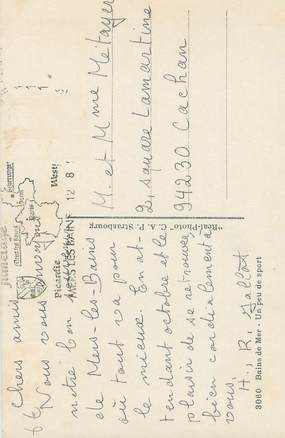 Chers amis
Nous vous envoyons
notre bon
de Mers-les-Bains
où tout va pour
le mieux. En at-
tendant octobre et le
plaisir de se retrouver,
bien cordialement à
vous.
H., R. Jalbot
M. et Mme Métayer
2, square Lamartine
94230 Cachan
"Réal-Photo" C. A. P. Strasbourg
3060 Bains de Mer - Un peu de sport
Picardie
West!
12 8